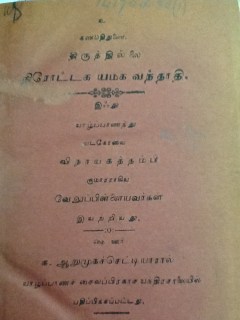 உ
கணபதிதுணை.
திருத்தில்லை
நிரோட்டக யமக வந்தாதி.
இஃது
யாழ்ப்பாணத்து
வடகோவை
விநாயகத்தம்பி
குமாரராகிய
வேலுப்பிள்ளையவர்கள்
இயற்றியது.
ஊர்
க. ஆறுமுகச்செட்டியாரால்
யாழ்ப்பாண சைவப்பிரகாச யந்திரசாலையில்
பதிப்பிக்கப்பட்டது.